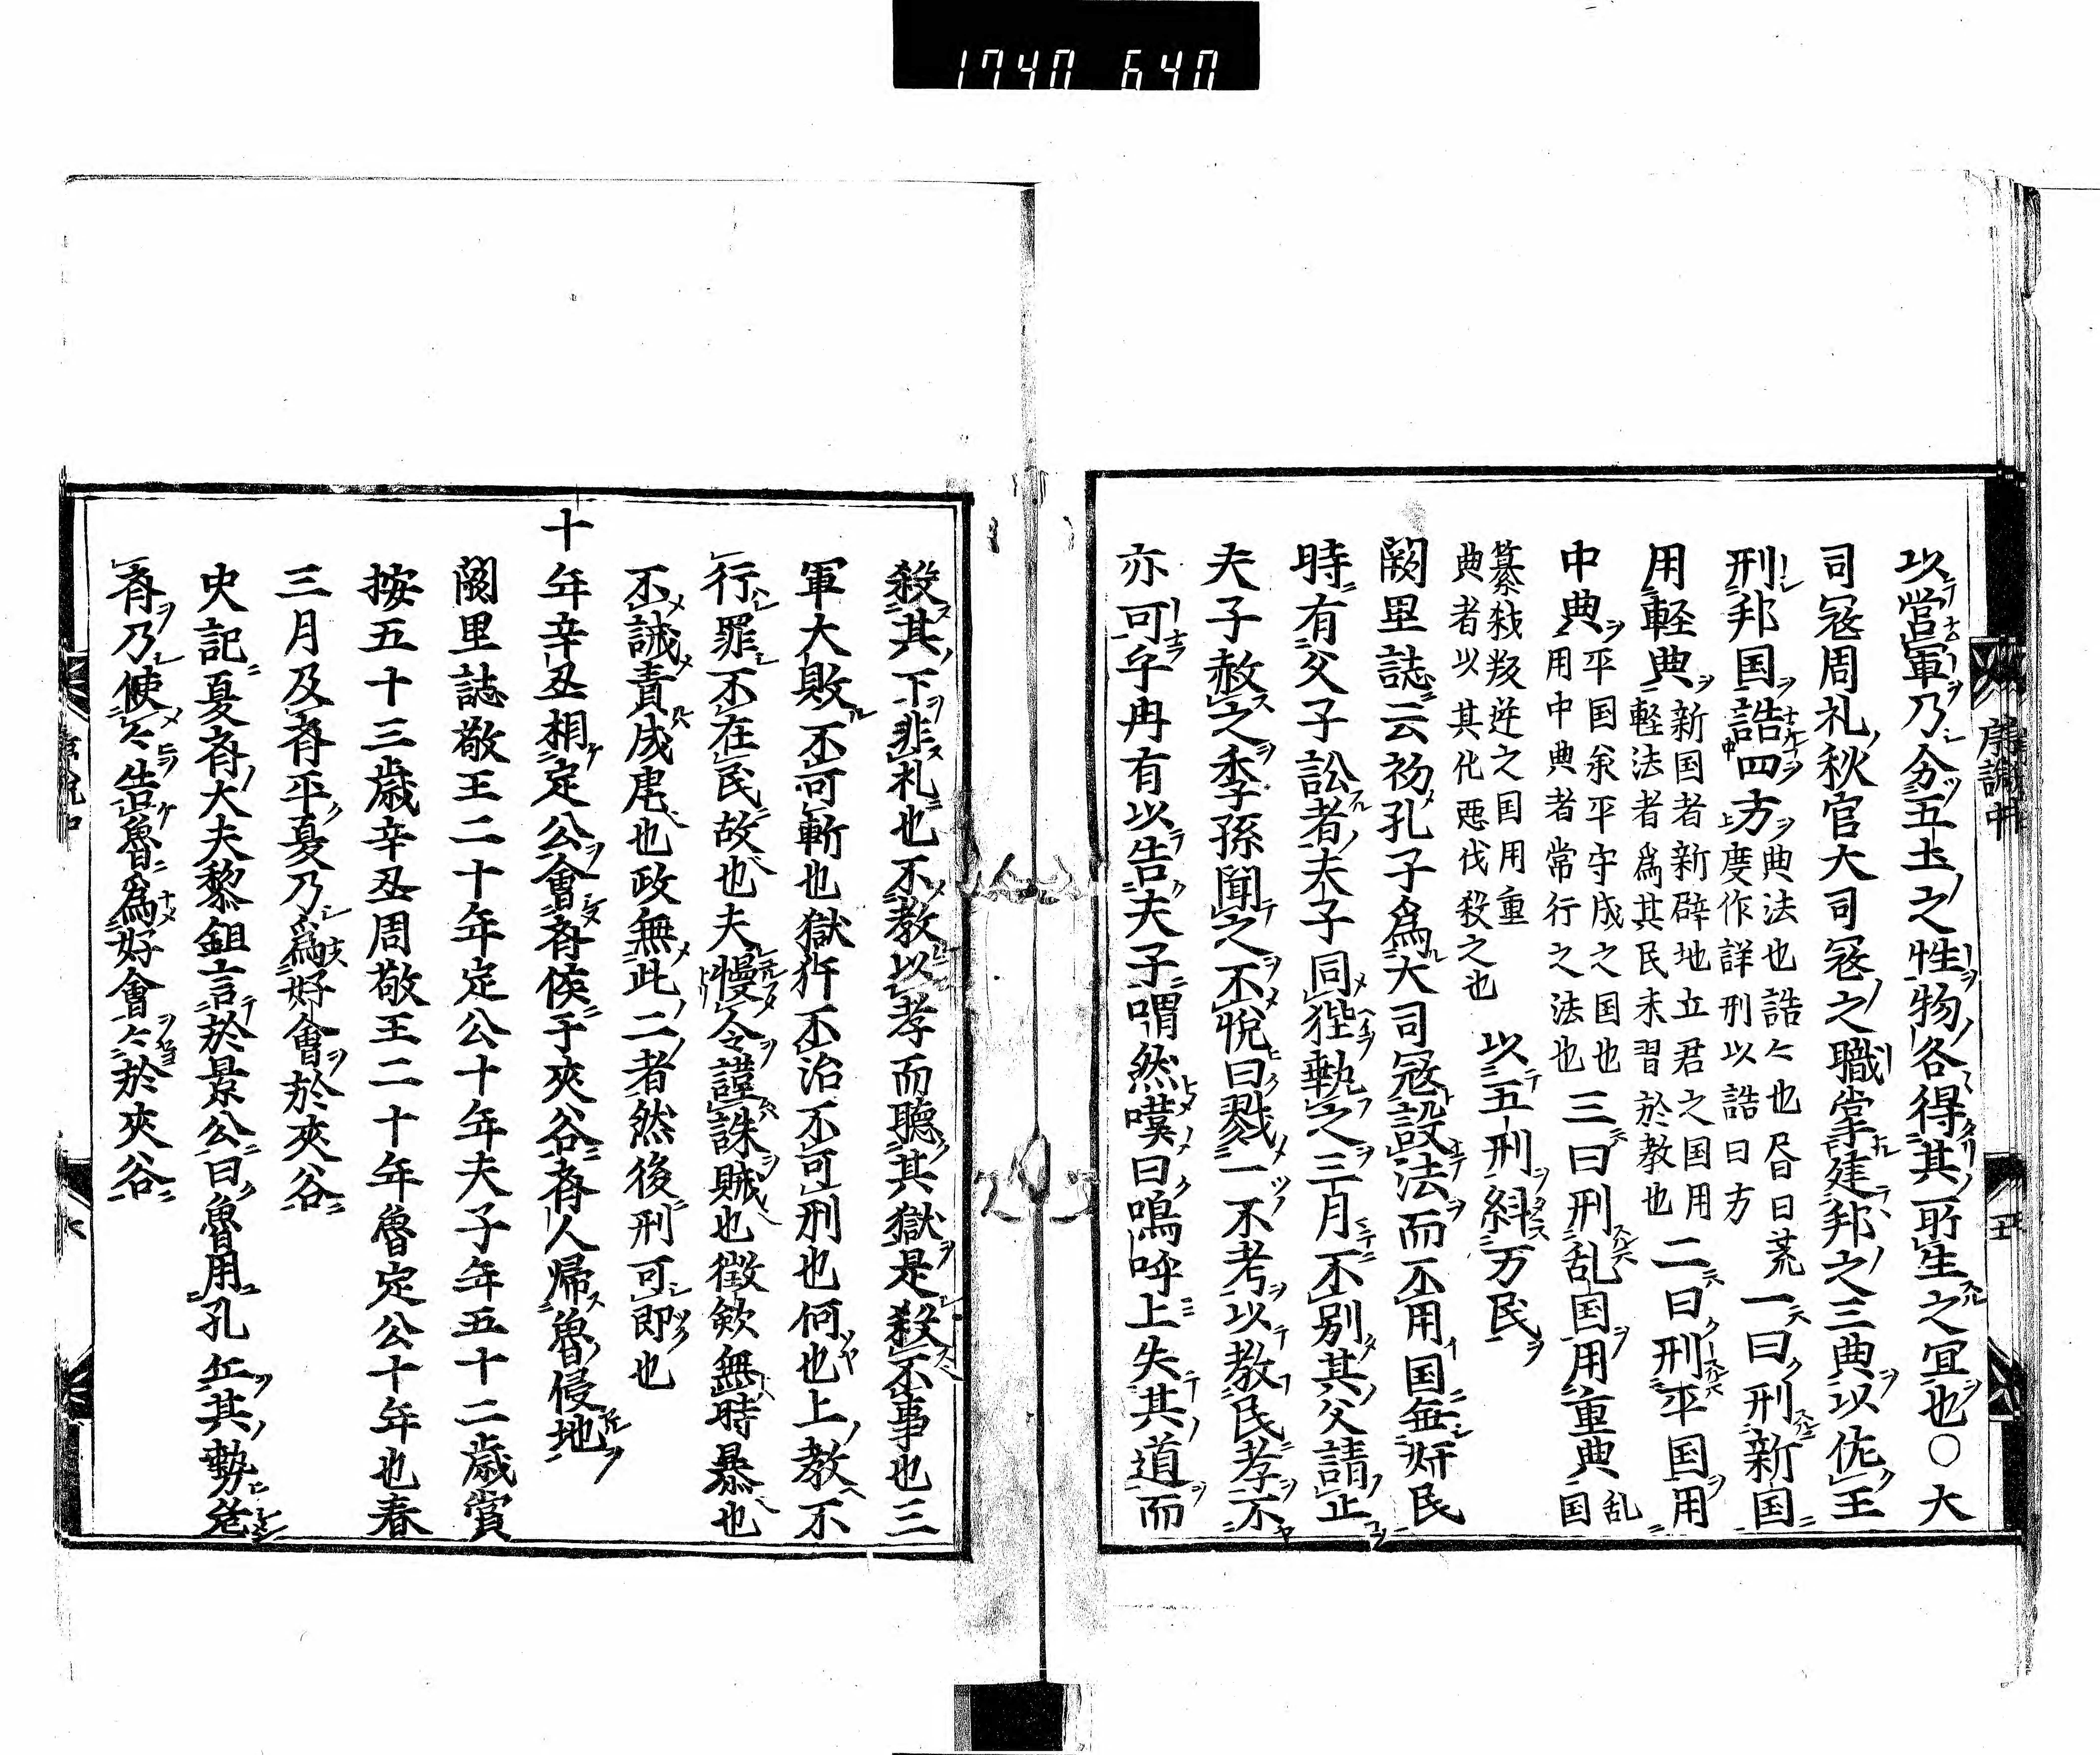 1740 640
以営軍乃分五土之性物各得其所生之宜也○大
司冦周礼秋官大司冦之職掌建邦之三典以佐王
刑邦国誥四方典法也誥今也㫺曰荒度作詳刑以誥曰方一曰刑新国
用軽典新国者新辟地立君之国用軽法者爲其民未習於教也二曰刑平国用
中典平国承平守成之国也用中典者常行之法也三曰刑乱国用重典乱国
簒殺叛逆之国用重典者以其化悪伐殺之也以五刑糾万民
闕里誌云初孔子爲大司冦設法而不用国無奸民
時有父子訟者夫子同狴執之三月不別其父請止
夫子赦之季孫聞之不悦曰戮一不考以教民孝不
亦可乎冉有以告夫子喟然嘆曰嗚呼上失其道而
殺其下非礼也不教以孝而聴其獄是殺不事也三
軍大敗不可斬也獄犴不治不可刑也何也上教不
行罪不在民故也夫慢令謹誅賊也徴斂無時暴也
不誡責成虐也政無此二者然後刑可即也
十年辛丑相定公會斉侯于夾谷斉人帰魯侵地
闕里誌敬王二十年定公十年夫子年五十二歳賞
按五十三歳辛丑周敬王二十年魯定公十年也春
三月及斉平夏乃爲好會於夾谷
史記夏斉大夫黎鉏言於景公曰魯用孔丘其勢危
斉乃使々告魯爲好會々於夾谷